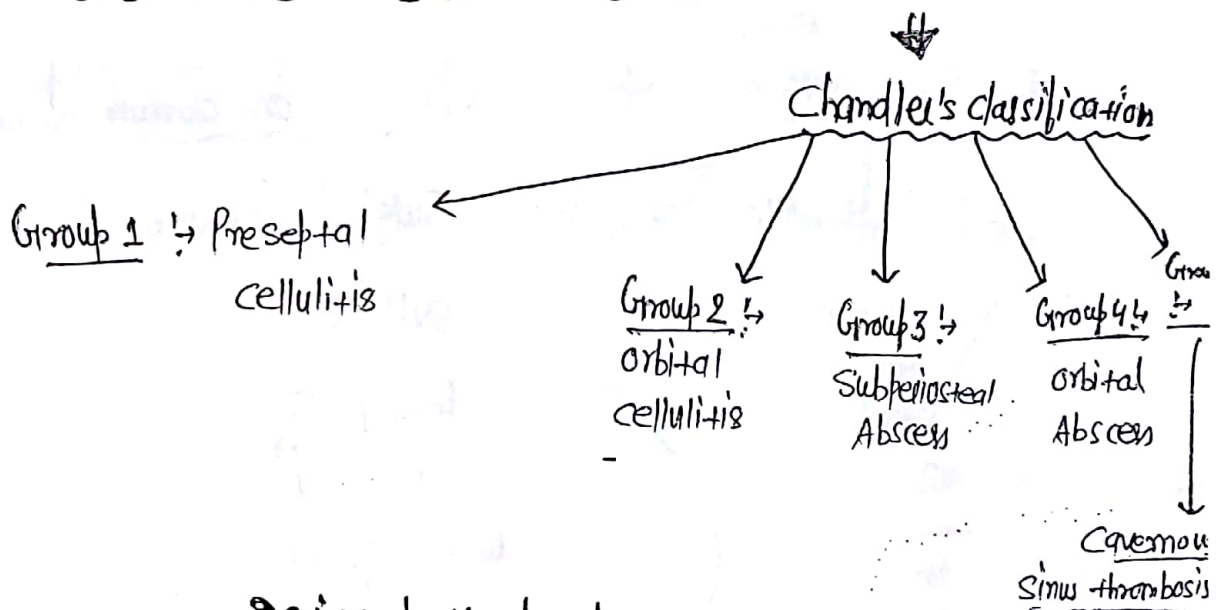 Chandler's classification
Group 1 :→ Preseptal
cellulitis
Group 2 :→
orbital
cellulitis
Group 3 :→
Subperiosteal
Abscess
Group 4 :→
orbital
Abscess
:→
Sinus thrombosis